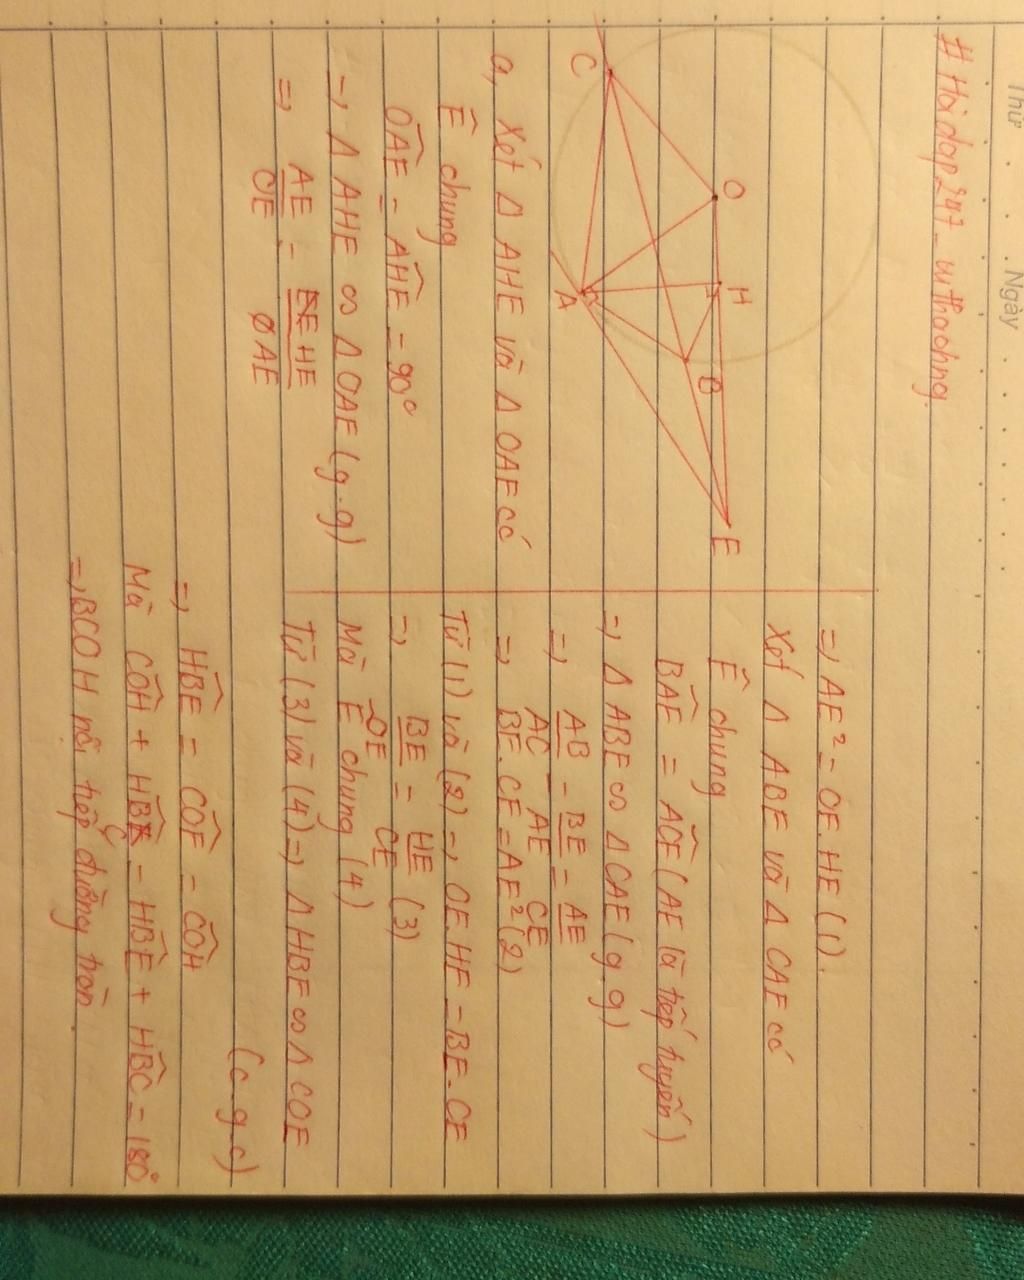 Thứ
Ngày
# Hoidap247_uthachng
C
O
H
A
B
E
a, Xét Δ AHE và Δ OAE có
Ê chung
OÂE = AĤE = 90°
→ Δ AHE ∽ Δ OAE (g.g)
=> AE/OE = HE/AE
=> AE² = OE.HE (1).
Xét Δ ABE và Δ CAE có
Ê chung
BÂE = AĈE (AE là tiếp tuyến)
=> Δ ABE ∽ Δ CAE (g.g)
=> AB/AC = BE/AE = AE/CE
=> BE.CE = AE² (2)
Từ (1) và (2) => OE.HE = BE.CE
=> BE/OE = HE/CE (3)
Mà Ê chung (4)
Từ (3) và (4) => Δ HBE ∽ Δ COE
(c.g.c)
=> HB̂E = CÔE = CÔH
Mà CÔH + HB̂C = HB̂E + HB̂C = 180°
=> BCOH nội tiếp đường tròn